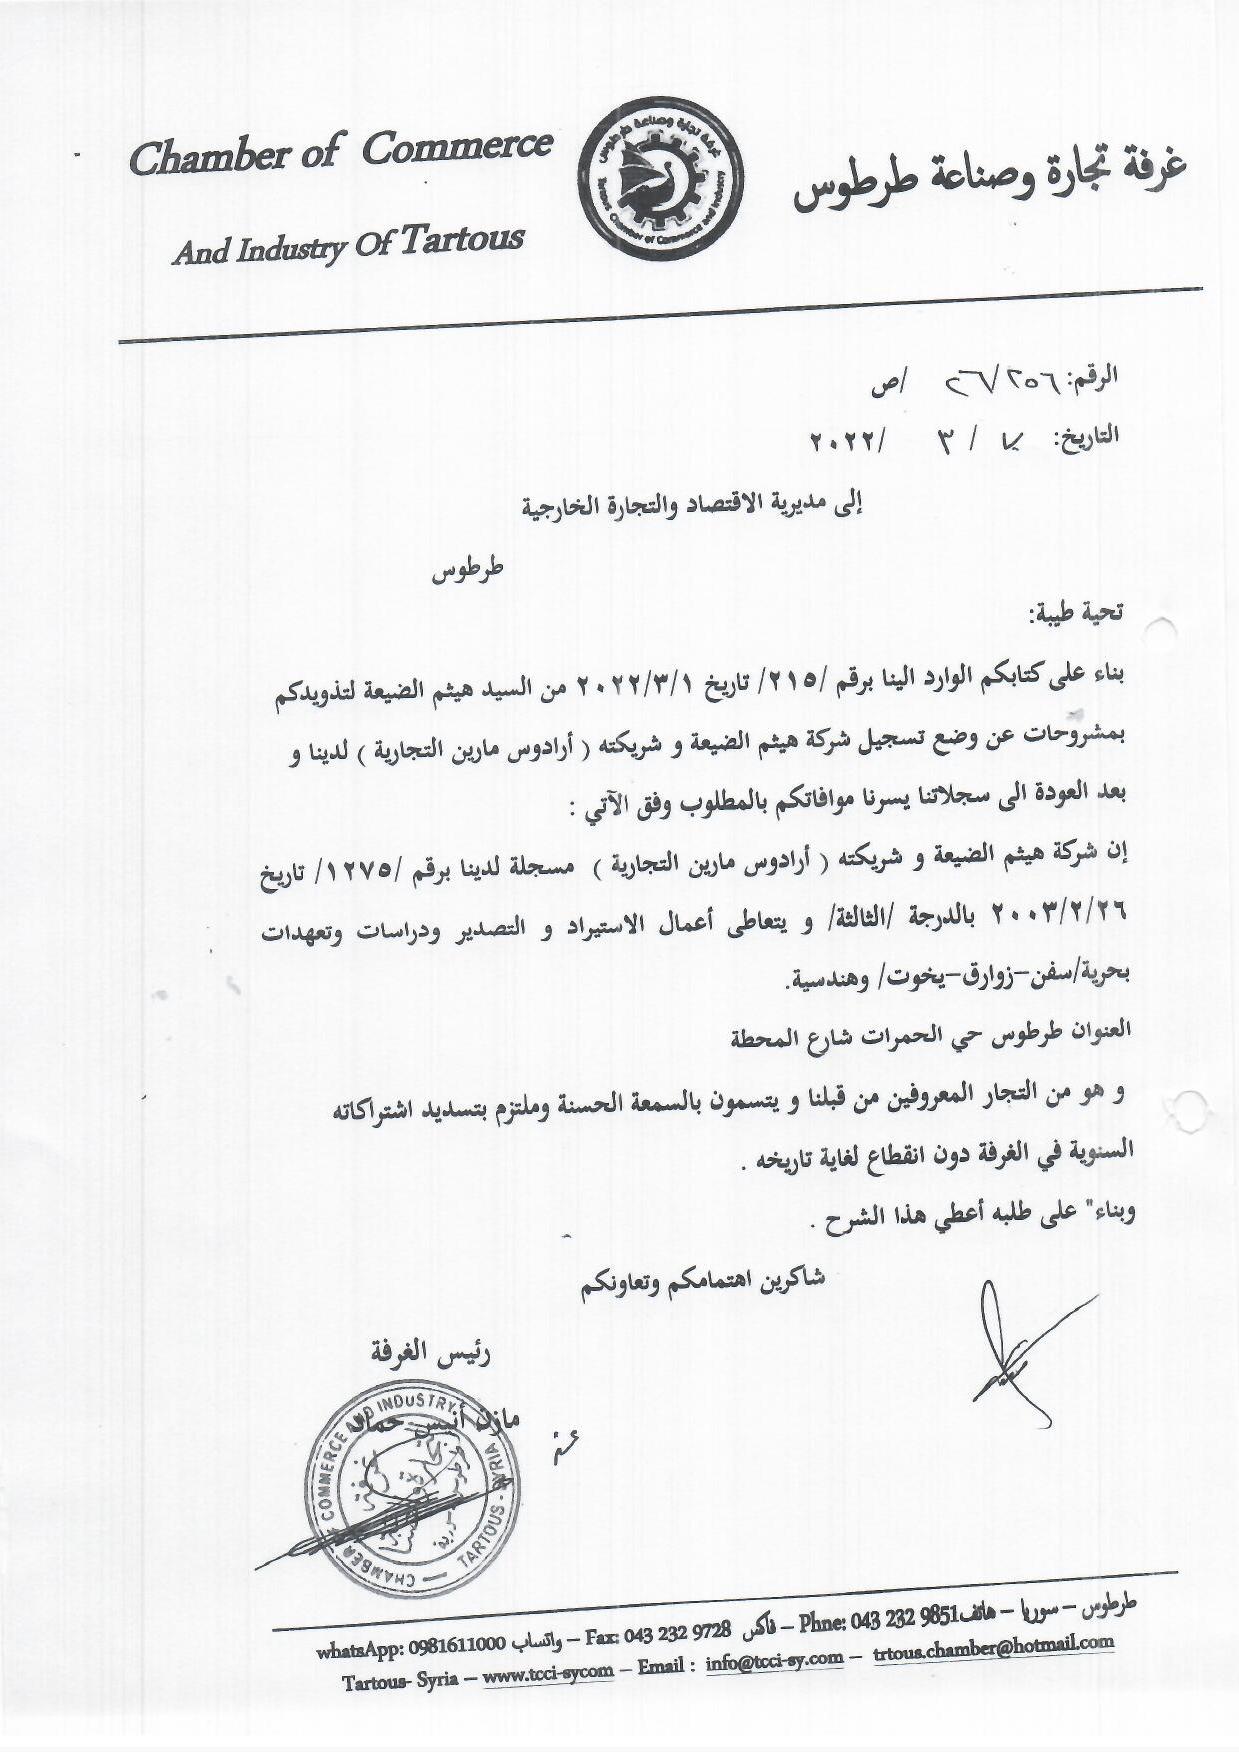 Chamber of Commerce
And Industry Of Tartous
غرفة تجارة وصناعة طرطوس
Tartous Chamber of Commerce and Industry
غرفة تجارة وصناعة طرطوس
الرقم: ٢٦/٢٥٦ /ص
التاريخ: / ٣ /٢٠٢٢
إلى مديرية الاقتصاد والتجارة الخارجية
طرطوس
تحية طيبة:
بناء على كتابكم الوارد الينا برقم /٢١٥/ تاريخ ٢٠٢٢/٣/١ من السيد هيثم الضيعة لتذويدكم
بمشروحات عن وضع تسجيل شركة هيثم الضيعة و شريكته ( أرادوس مارين التجارية ) لدينا و
بعد العودة الى سجلاتنا يسرنا موافاتكم بالمطلوب وفق الآتي :
إن شركة هيثم الضيعة و شريكته ( أرادوس مارين التجارية ) مسجلة لدينا برقم /١٢٧٥/ تاريخ
٢٠٠٣/٢/٢٦ بالدرجة /الثالثة/ و يتعاطى أعمال الاستيراد و التصدير ودراسات وتعهدات
بحرية/سفن-زوارق-يخوت/ وهندسية.
العنوان طرطوس حي الحمرات شارع المحطة
و هو من التجار المعروفين من قبلنا و يتسمون بالسمعة الحسنة وملتزم بتسديد اشتراكاته
السنوية في الغرفة دون انقطاع لغاية تاريخه .
وبناء" على طلبه أعطي هذا الشرح .
شاكرين اهتمامكم وتعاونكم
رئيس الغرفة
مازن أنيس حماد
CHAMBER OF COMMERCE AND INDUSTRY
TARTOUS - SYRIA
طرطوس – سوريا – هاتف Phne: 043 232 9851 – فاكس Fax: 043 232 9728 – واتساب whatsApp: 0981611000
Tartous- Syria – www.tcci-sycom – Email : info@tcci-sy.com – trtous.chamber@hotmail.com